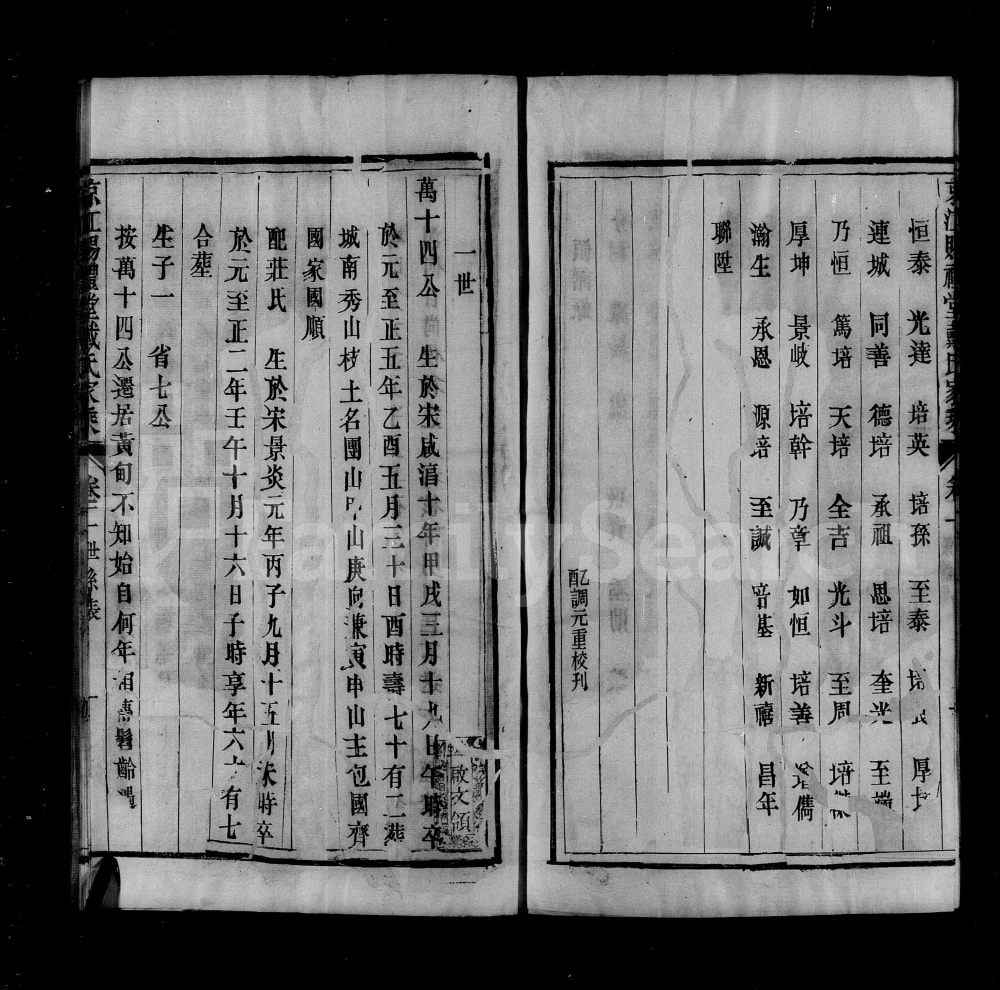 恒泰 光達 培英 培孫 至泰 厚
連城 同善 德培 承祖 思培 奎光 至
乃恒 篤培 天培 全吉 光斗 至周 培
厚坤 景岐 培幹 乃章 如恒 培善 儁
瀚生 承恩 源培 至誠 培基 新禧 昌年
聯陞
調元重校刊
一世
萬十四公 生於宋咸淳十年甲戌三月十九日午時卒
於元至正五年乙酉五月三十日酉時壽七十有二葬
城南秀山枝土名團山 山庚向兼寅申山主包國齊
國家國順
配莊氏 生於宋景炎元年丙子九月十五日未時卒
於元至正二年壬午十月十六日子時享年六十有七
合葬
生子一 省七公
按萬十四公遷居黃甸不知始自何年相傳髫齡
京江賜禮堂戴氏家乘
卷二 世系表 一
啟文領
FamilySearch